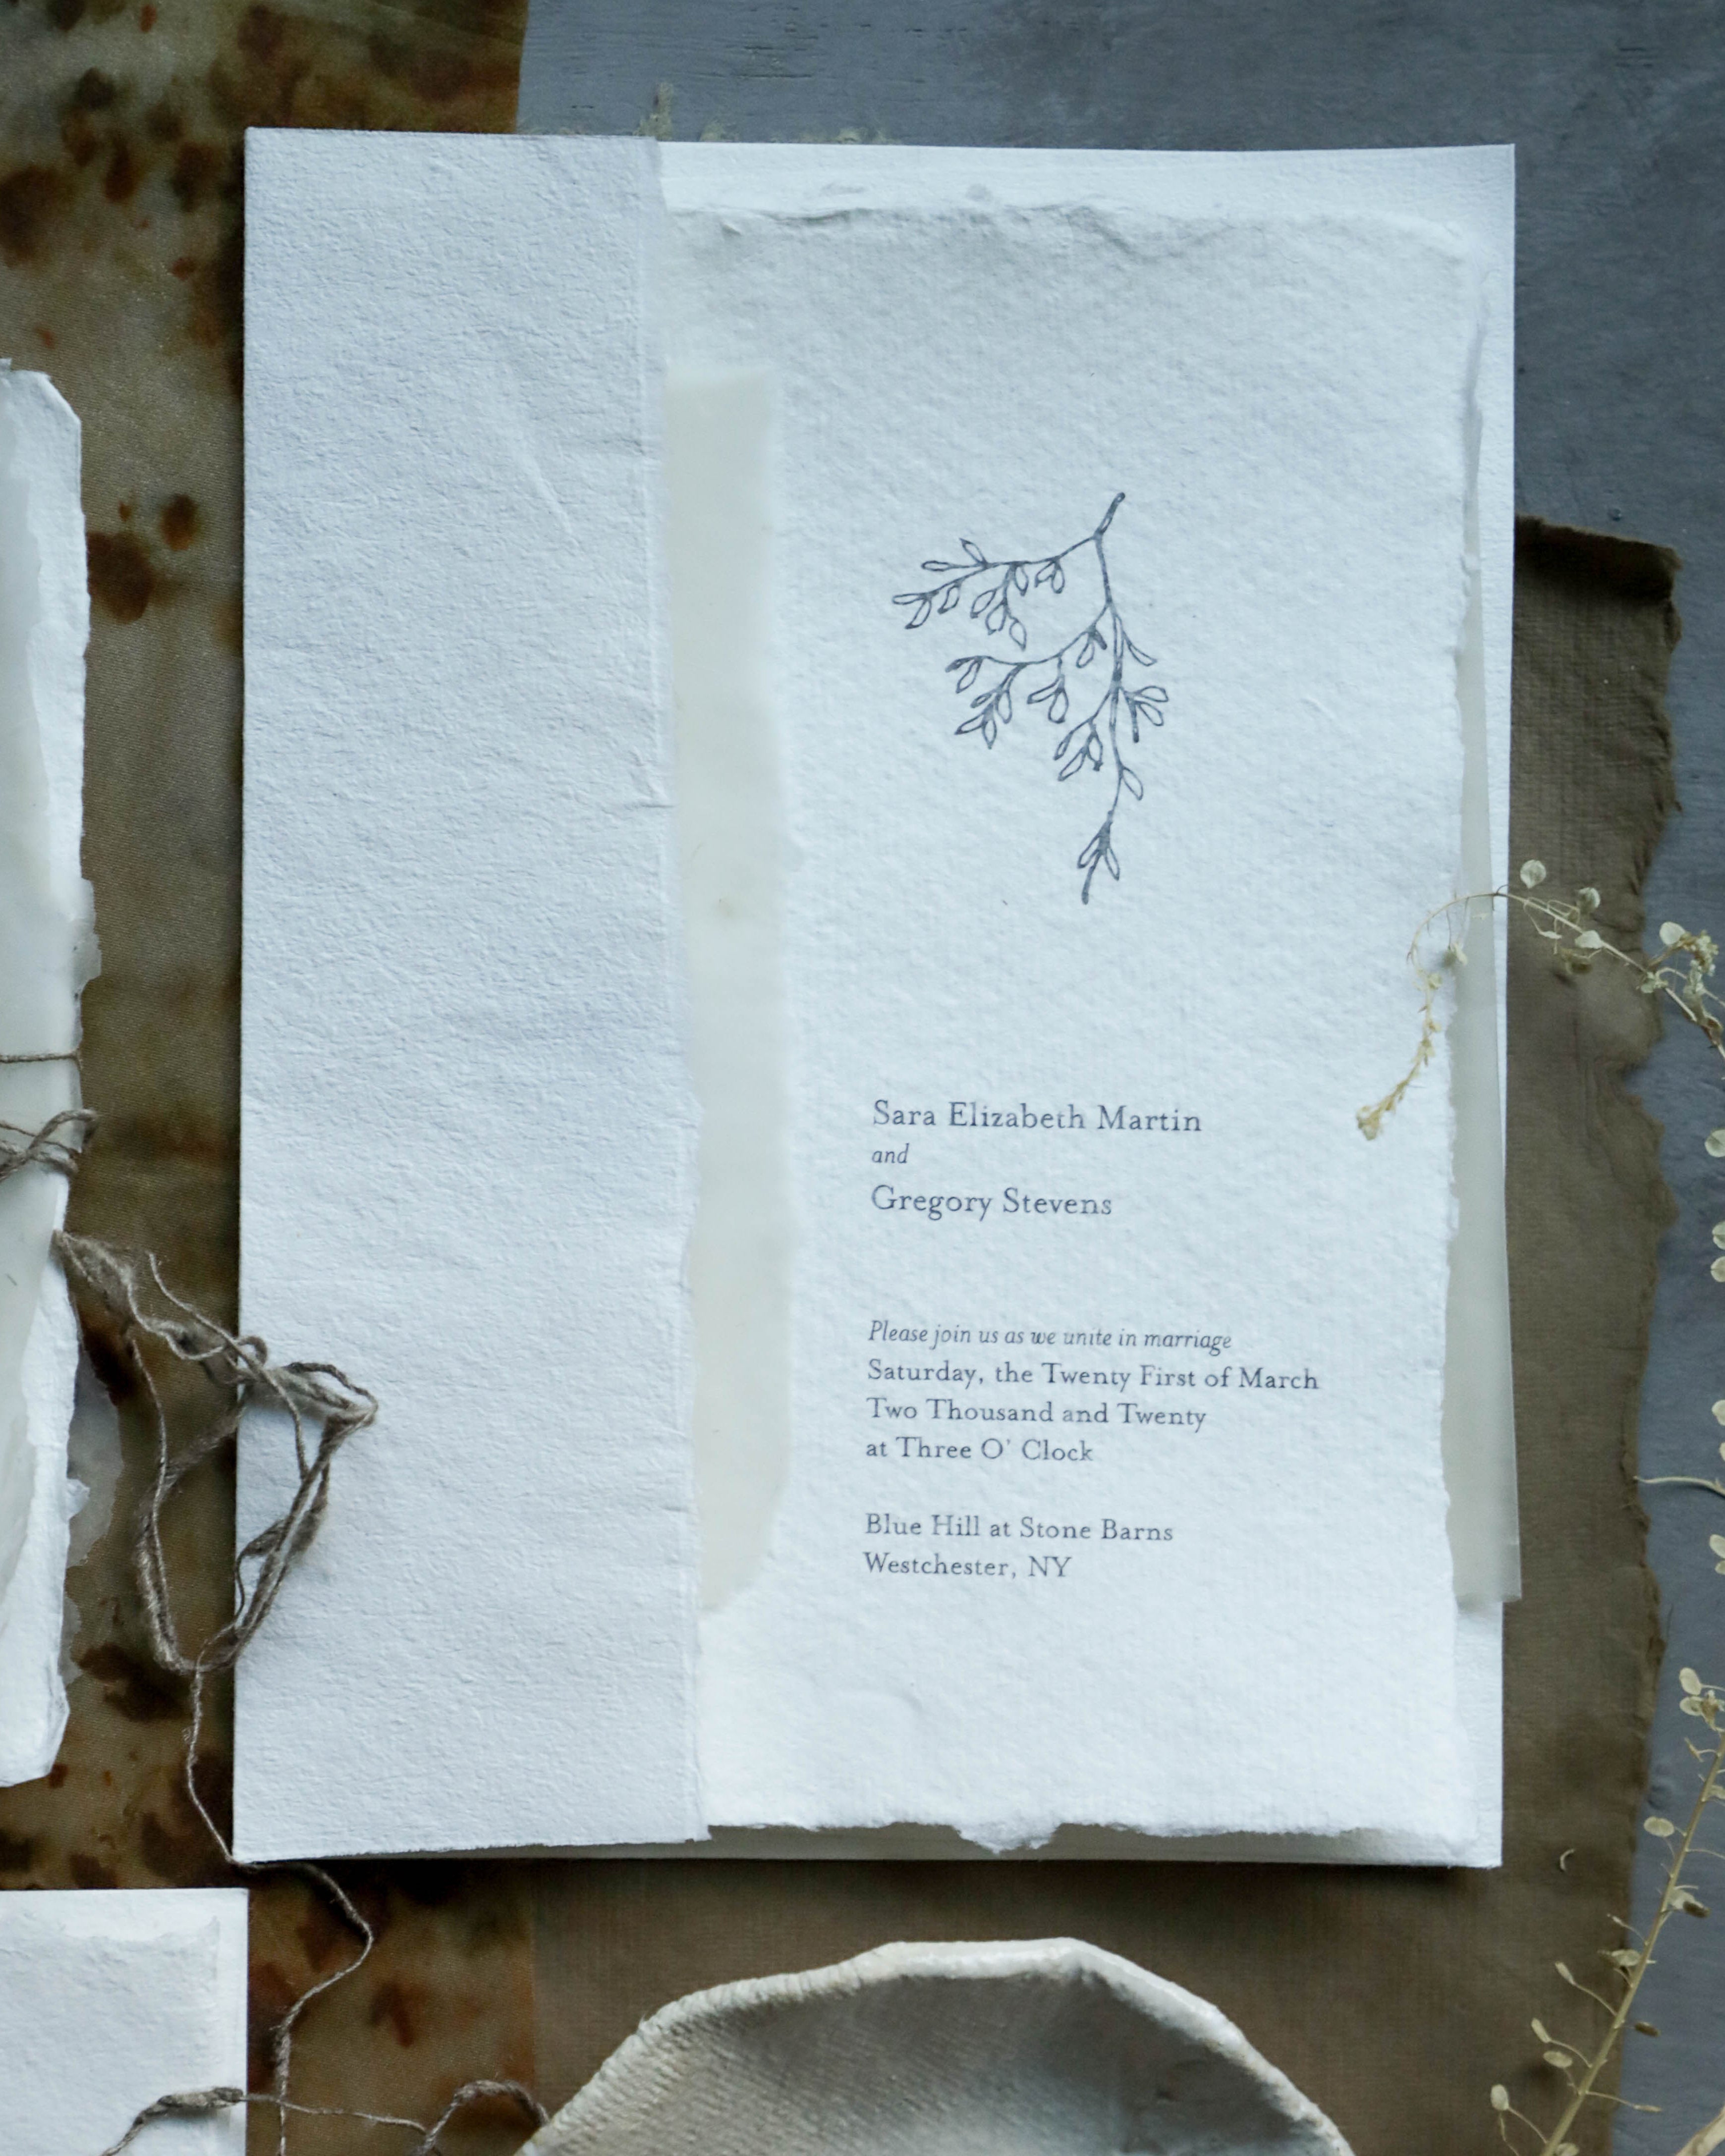 Sara Elizabeth Martin
and
Gregory Stevens
Please join us as we unite in marriage
Saturday, the Twenty First of March
Two Thousand and Twenty
at Three O' Clock
Blue Hill at Stone Barns
Westchester, NY